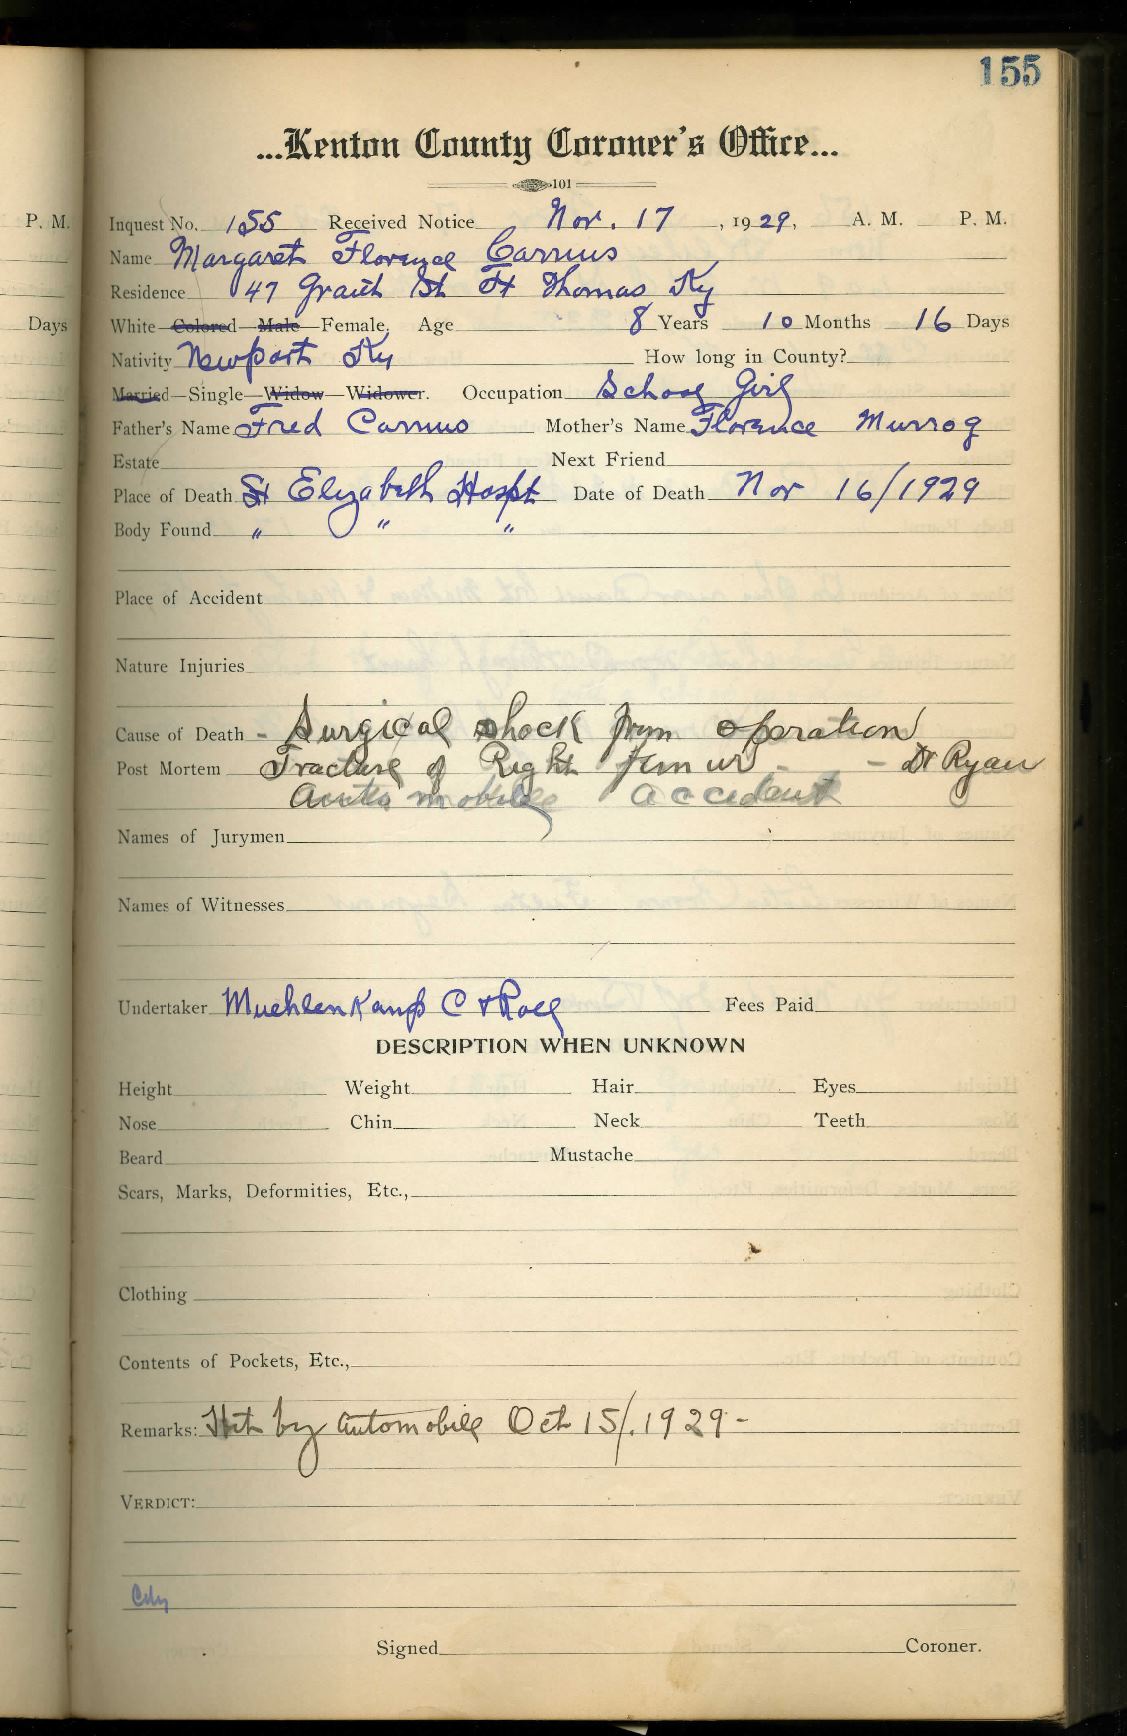 155
...Kenton County Coroner's Office...
101
P. M. Inquest No. 155 Received Notice Nov. 17, 1929, A. M. P. M.
Name Margaret Florence Carrius
Residence 47 St Ft Thomas Ky
Days White Colored Male Female. Age 8 Years 10 Months 16 Days
Nativity Newport Ky How long in County?
Married—Single—Widow—Widower. Occupation School Girl
Father's Name Fred Carrius Mother's Name Florence
Estate Next Friend
Place of Death St Elizabeth Hospt Date of Death Nov 16/1929
Body Found " " "
Place of Accident
Nature Injuries
Cause of Death - Surgical shock from operation
Post Mortem Fracture of Right femur - - Dr Ryan
Automobile accident
Names of Jurymen
Names of Witnesses
Undertaker Muehlenkamp C & Fees Paid
DESCRIPTION WHEN UNKNOWN
Height Weight Hair Eyes
Nose Chin Neck Teeth
Beard Mustache
Scars, Marks, Deformities, Etc.,
Clothing
Contents of Pockets, Etc.,
Remarks: Hit by automobile Oct 15/.1929-
VERDICT:
City
Signed Coroner.